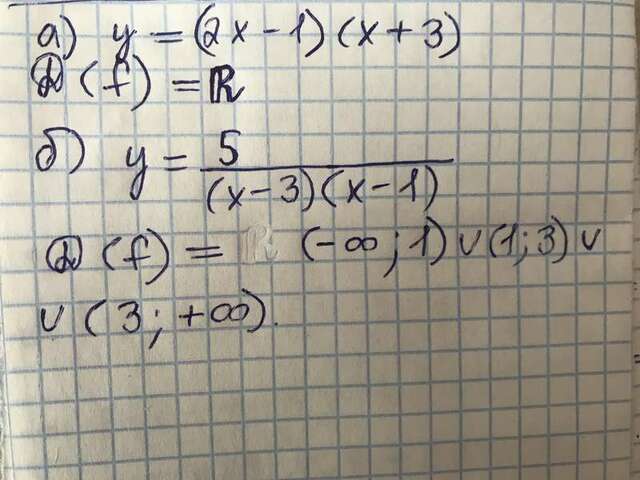 а) y = (2x-1)(x+3)
D(f) = R
б) y = 5
(x-3)(x-1)
D(f) = (-∞; 1) ∪ (1; 3) ∪
∪ (3; +∞).